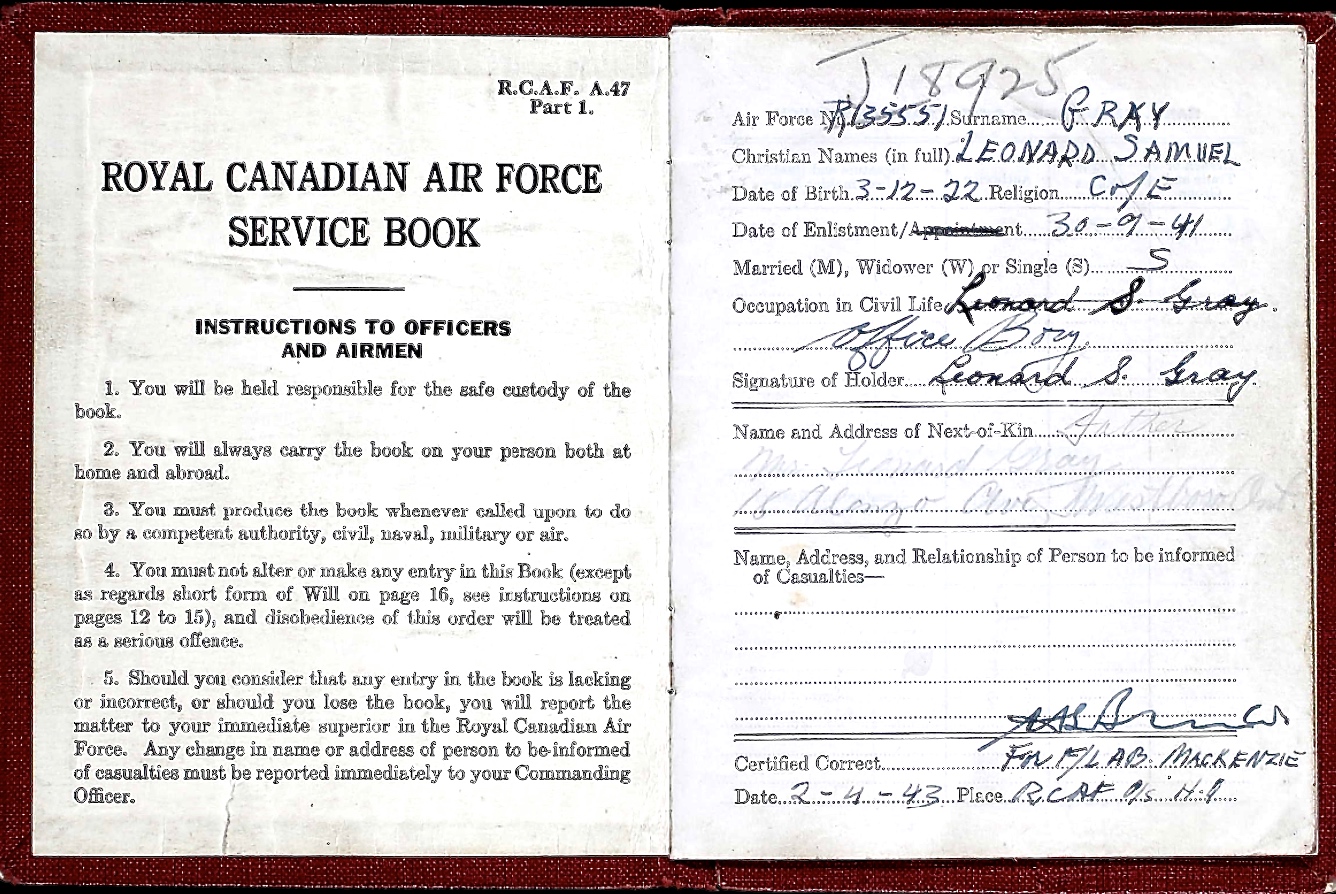 R.C.A.F. A.47
Part 1.
ROYAL CANADIAN AIR FORCE
SERVICE BOOK
INSTRUCTIONS TO OFFICERS
AND AIRMEN
1. You will be held responsible for the safe custody of the
book.
2. You will always carry the book on your person both at
home and abroad.
3. You must produce the book whenever called upon to do
so by a competent authority, civil, naval, military or air.
4. You must not alter or make any entry in this Book (except
as regards short form of Will on page 16, see instructions on
pages 12 to 15), and disobedience of this order will be treated
as a serious offence.
5. Should you consider that any entry in the book is lacking
or incorrect, or should you lose the book, you will report the
matter to your immediate superior in the Royal Canadian Air
Force. Any change in name or address of person to be informed
of casualties must be reported immediately to your Commanding
Officer.
J18925
Air Force No. R135551 Surname GRAY
Christian Names (in full) LEONARD SAMUEL
Date of Birth 3-12-22 Religion C of E
Date of Enlistment/Appointment 30-9-41
Married (M), Widower (W) or Single (S) S
Occupation in Civil Life Leonard S. Gray.
Office Boy.
Signature of Holder Leonard S. Gray
Name and Address of Next-of-Kin Father
Mr. Leonard Gray
Ave
Name, Address, and Relationship of Person to be informed
of Casualties—
Certified Correct For F/L A.B. MACKENZIE
Date 2-4-43 Place RCAF O/S H.Q.